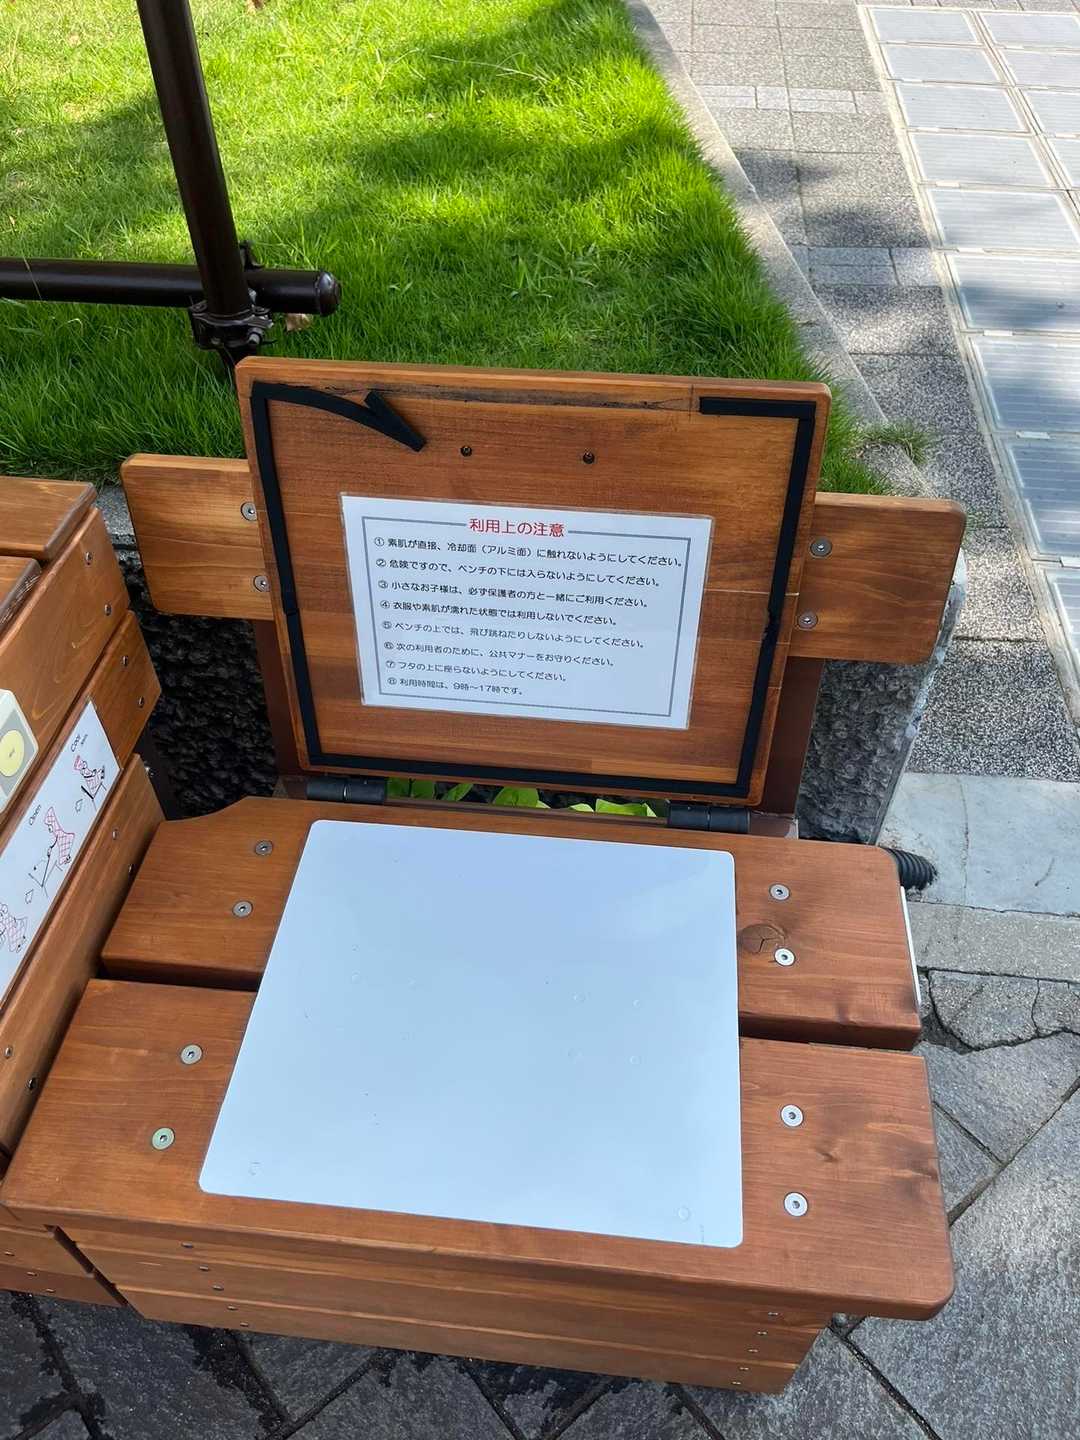 利用上の注意
① 素肌が直接、冷却面（アルミ面）に触れないようにしてください。
② 危険ですので、ベンチの下には入らないようにしてください。
③ 小さなお子様は、必ず保護者の方と一緒にご利用ください。
④ 衣服や素肌が濡れた状態では利用しないでください。
⑤ ベンチの上では、飛び跳ねたりしないようにしてください。
⑥ 次の利用者のために、公共マナーをお守りください。
⑦ フタの上に座らないようにしてください。
⑧ 利用時間は、9時～17時です。
Cool
Open